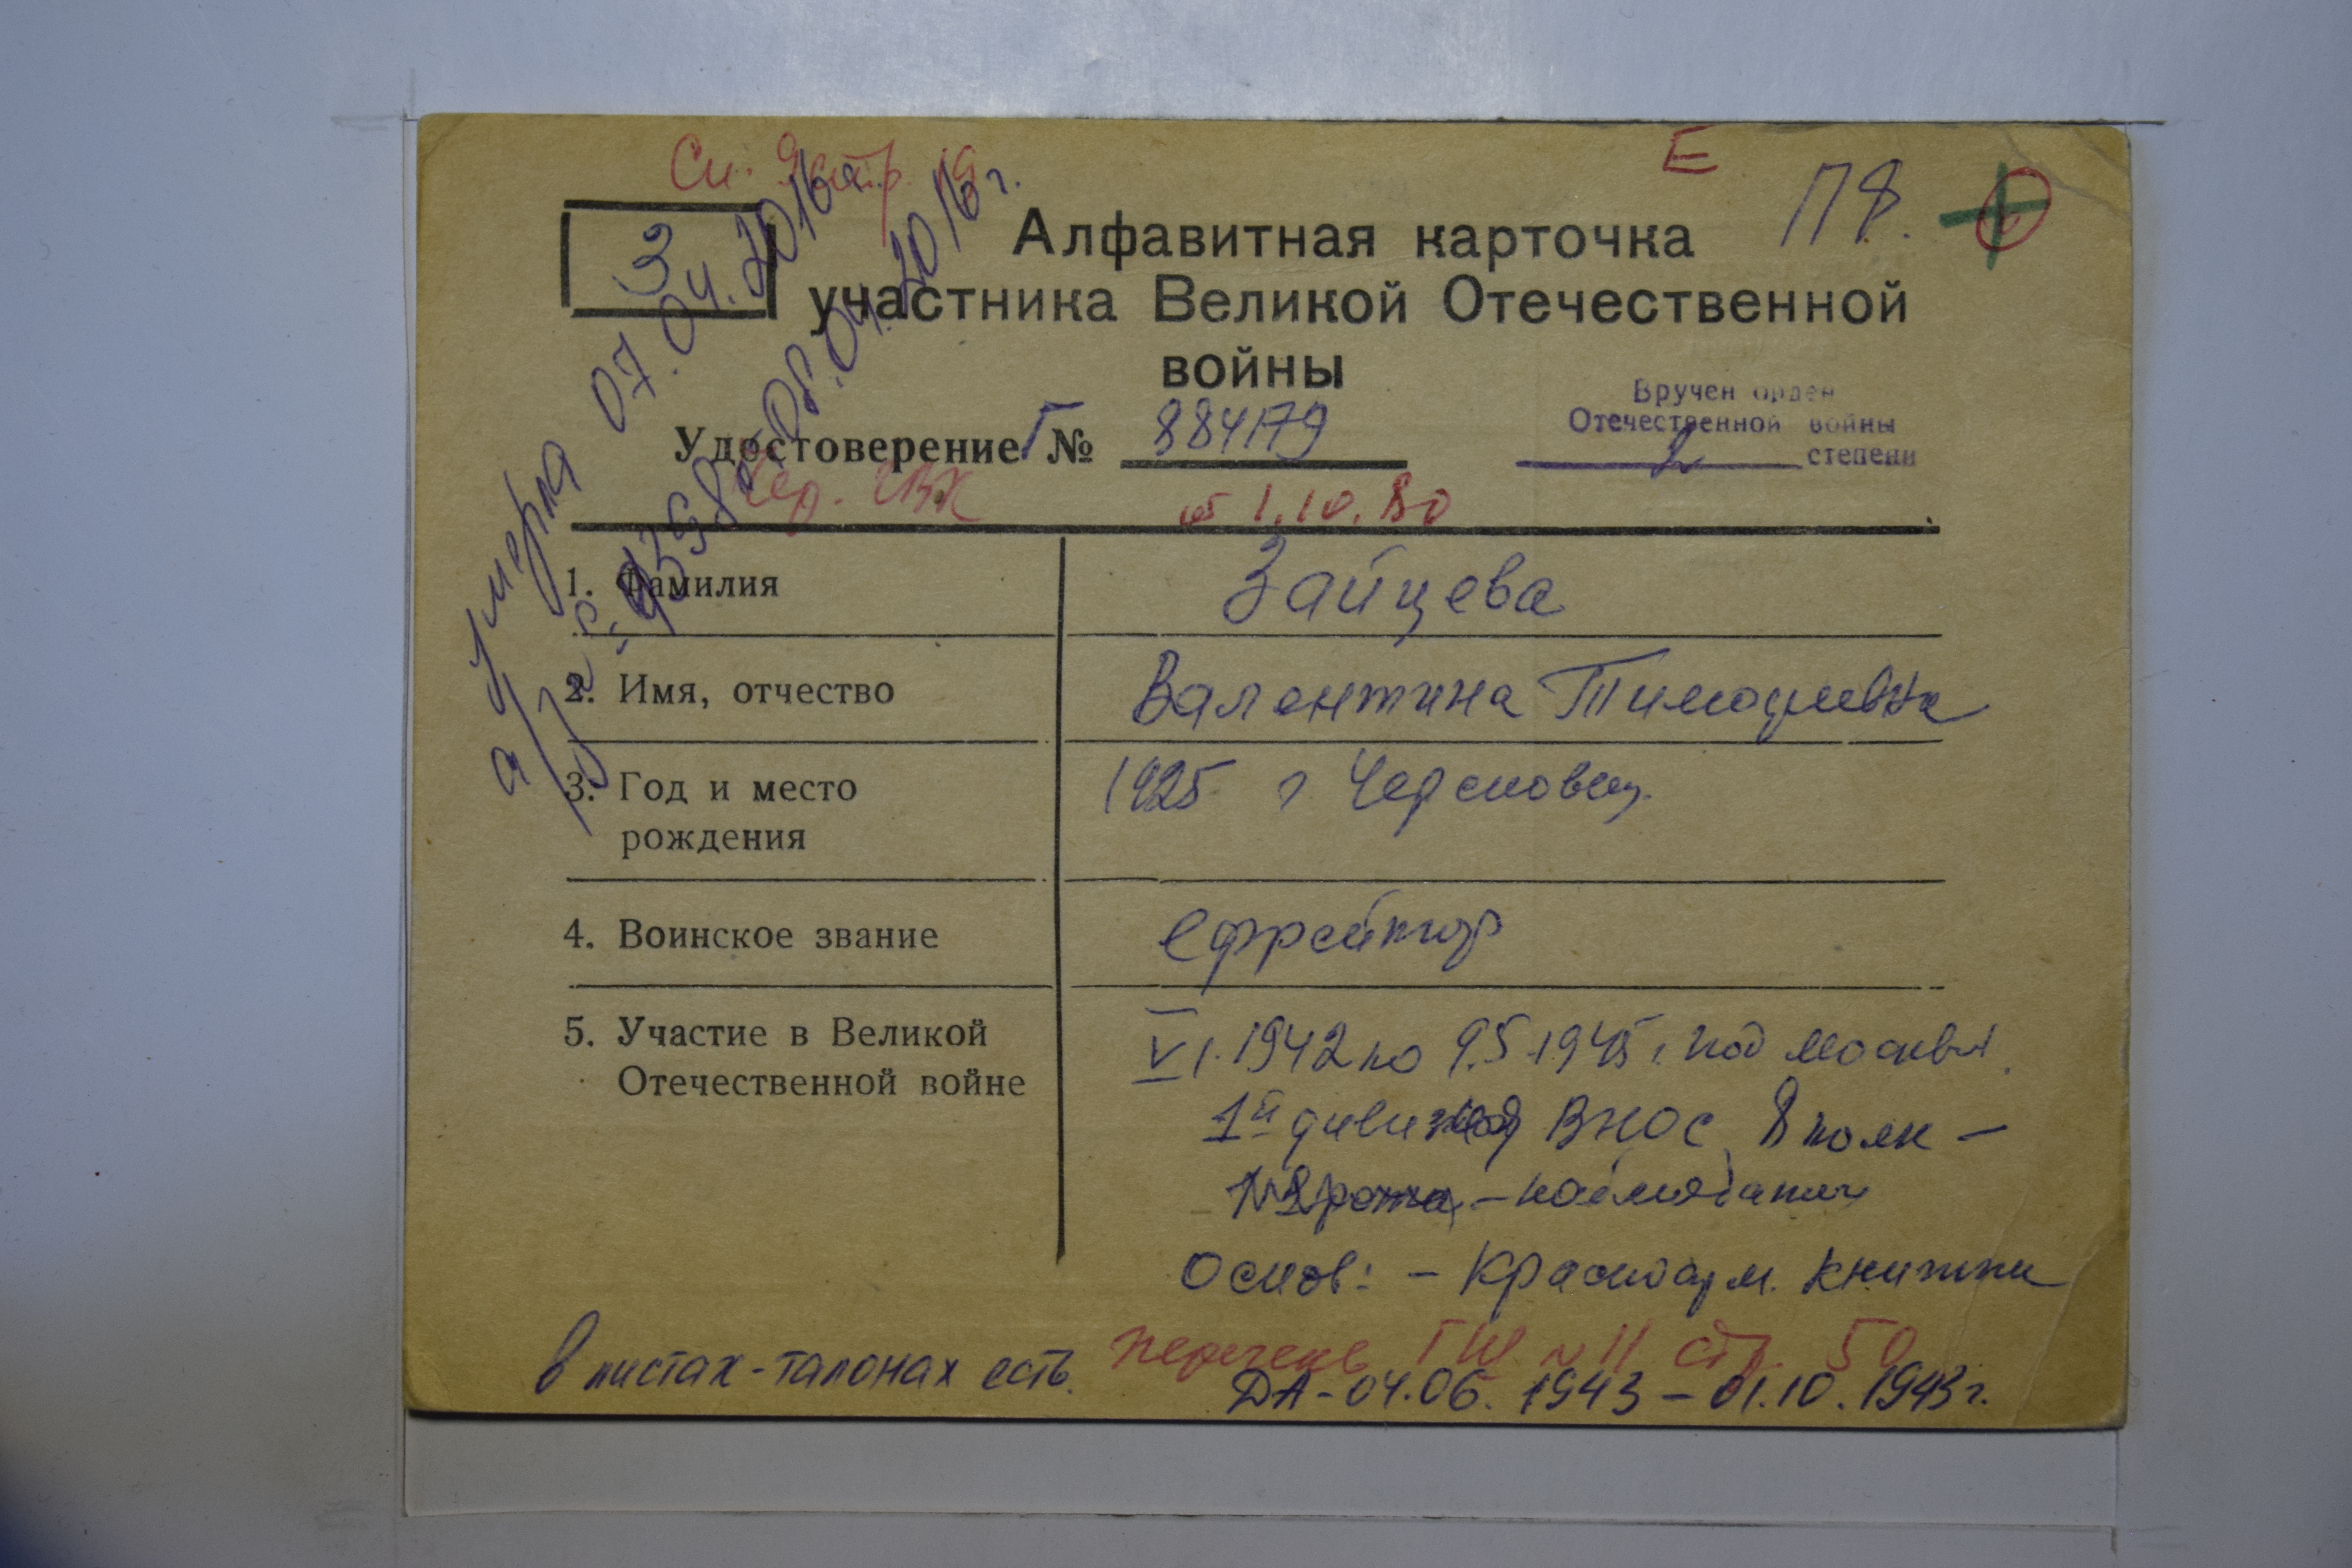 См. 9 стр. 19
Е
П8.
З
Алфавитная карточка
участника Великой Отечественной
войны
Вручен орден
Отечественной войны
2 степени
Удостоверение Г № 884179
от 1.10.80
умерла 07.04.2016 г.
08.04.2016 г.
1. Фамилия Зайцева
2. Имя, отчество Валентина Тимофеевна
3. Год и место 1925 г Череповец.
рождения
4. Воинское звание ефрейтор
5. Участие в Великой VI.1942 по 9.5.1945 г. под Москвы.
Отечественной войне 1й дивизия ВНОС, 8 полк –
рота, – наблюдатель
Основ: – Красноарм. книжки
перечень ГШ № 11 стр. 50
в листах-талонах есть.
ДА – 04.06.1943 – 01.10.1943 г.